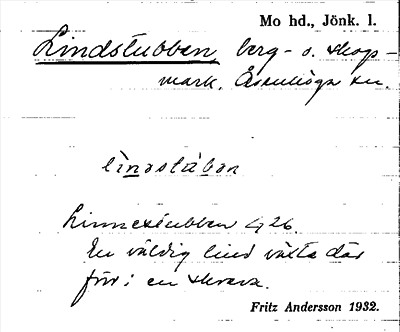 Mo hd., Jönk. l.
Lindstubben, berg- o. skogs-
mark, Åsenhöga sn.
Linnestubben 426.
En väldig lind växte där
förr i en skreva.
Fritz Andersson 1932.